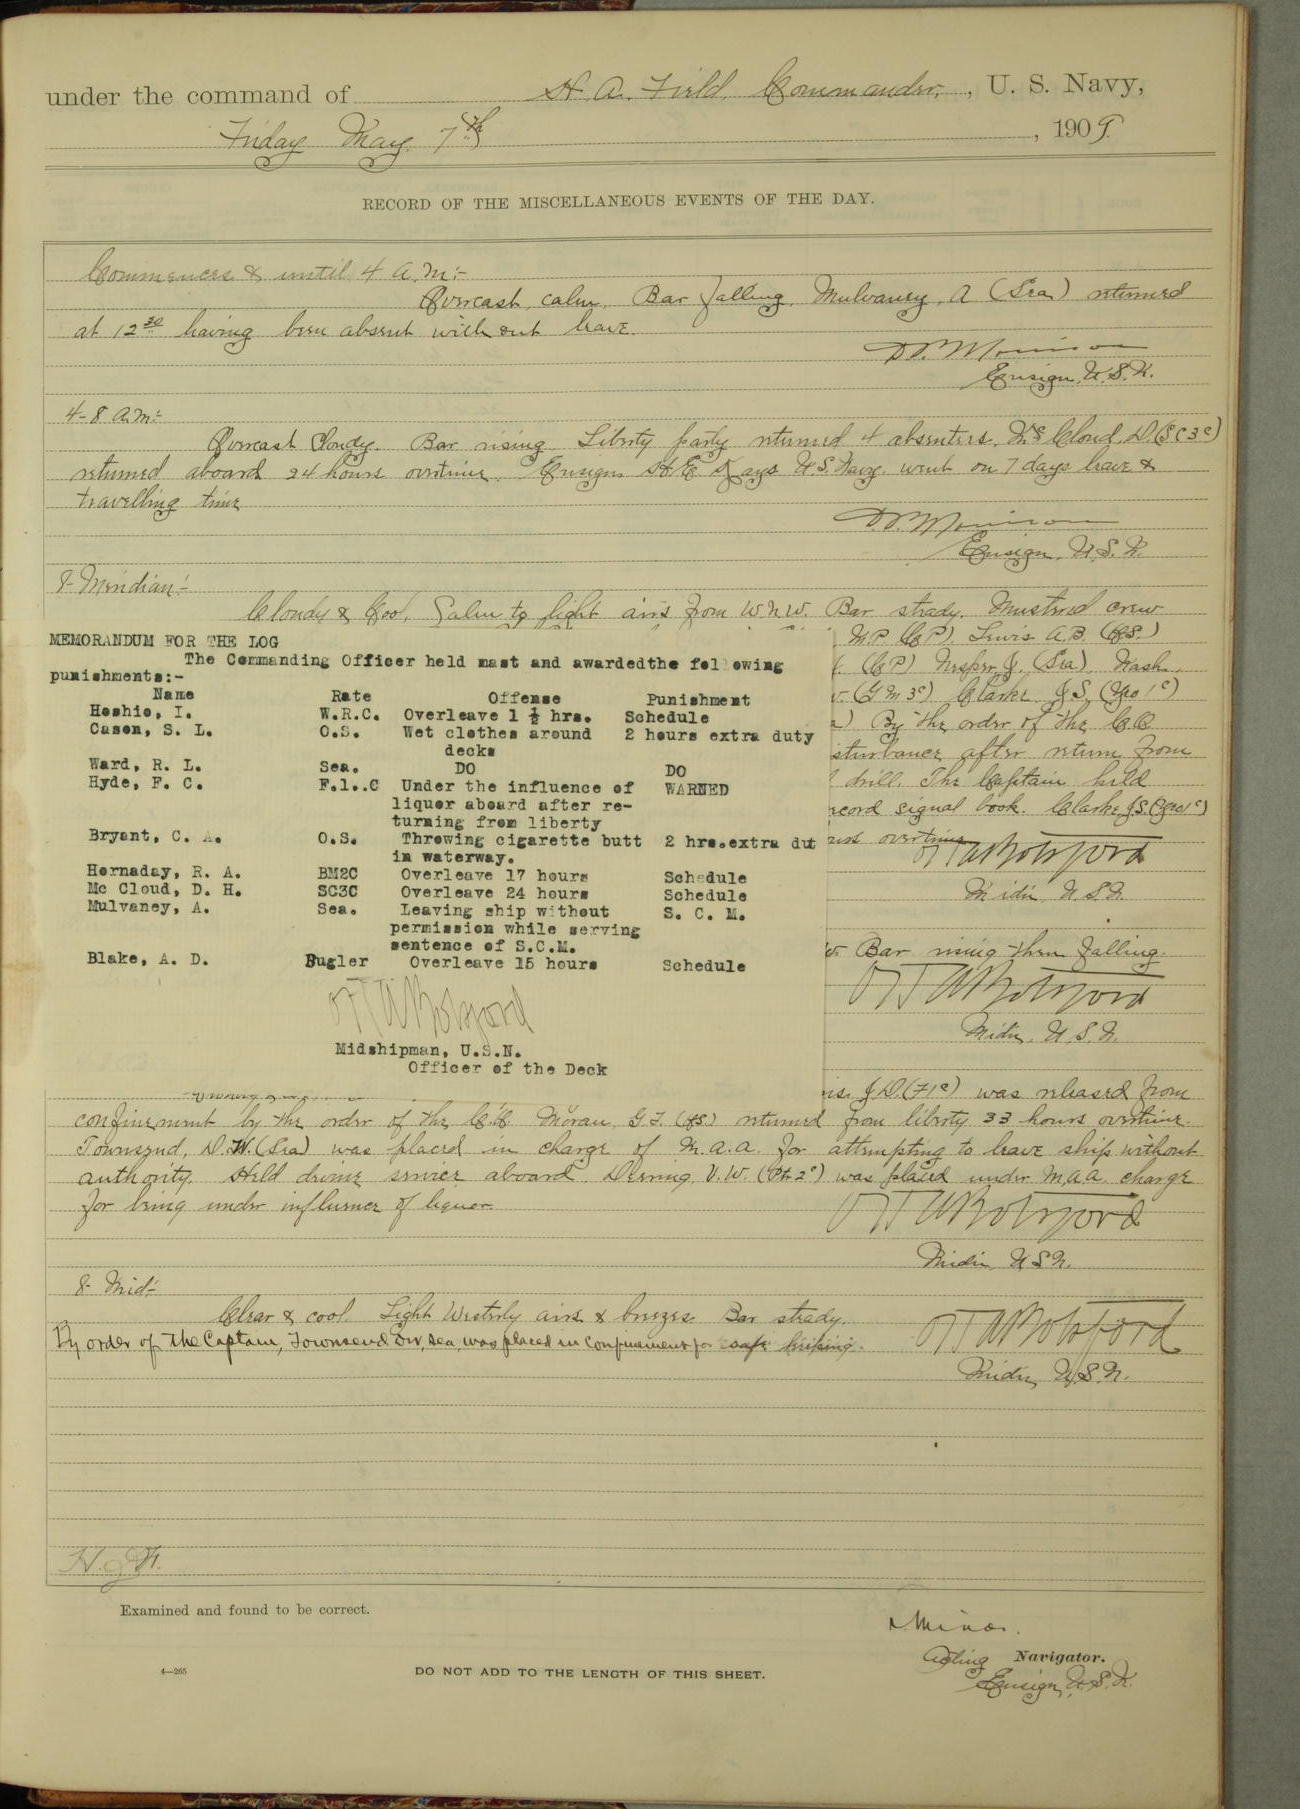 under the command of H. A. Field Commander, U. S. Navy,
Friday May 7th, 1909
RECORD OF THE MISCELLANEOUS EVENTS OF THE DAY.
Commences & until 4 A.M:-
Overcast, calm. Bar falling. Mulvaney, A (Sea) returned
at 12 30 having been absent without leave.
D.P. Morrison
Ensign, U.S.N.
4-8 A.M:-
Overcast Cloudy. Bar rising. Liberty party returned 4 absentees. Mc Cloud, D. (SC3c)
returned aboard 24 hours overtime. Ensign H.E. Kays U.S. Navy. went on 7 days leave &
travelling time
D.P. Morrison
Ensign, U.S.N.
8- Meridian:-
Cloudy & Cool. Calm to light airs from W.N.W. Bar steady. Mustered crew
M.P. (CP). Lewis A.B. (OS.)
MEMORANDUM FOR THE LOG
The Commanding Officer held mast and awardedthe following
(CP) Nesper J. (Sea), Nash,
punishments:-
Name Rate Offense Punishment
(GM3c) Clarke J.S. (Yeo 1c)
Hoshie, I. W.R.C. Overleave 1 ½ hrs. Schedule
By the order of the C.O.
Cason, S. L. O.S. Wet clothes around 2 hours extra duty
decks
isturbance after return from
Ward, R. L. Sea. DO DO
drill. The Captain held
Hyde, F. C. F.1..C Under the influence of WARNED
liquor aboard after re-
ecord signal book. Clarke J.S. (Yeo1c)
turning from liberty
Bryant, C. A. O.S. Throwing cigarette butt 2 hrs.extra dut
in waterway.
overtime
O.T.A. Botsford
Hornaday, R. A. BM2C Overleave 17 hours Schedule
Mc Cloud, D. H. SC3C Overleave 24 hours Schedule
Midn U.S.N.
Mulvaney, A. Sea. Leaving ship without S. C. M.
permission while serving
sentence of S.C.M.
Bar rising then falling.
Blake, A. D. Bugler Overleave 15 hours Schedule
O.T.A. Botsford
O.T.A. Botsford
Midn. U.S.N.
Midshipman, U.S.N.
Officer of the Deck
J.D. (F1c) was released from
confinement by the order of the C.O. Moran, G.F. (OS.) returned from liberty 33 hours overtime.
Townsend, D.W. (Sea) was placed in charge of M.A.A. for attempting to leave ship without
authority. Held divine service aboard. Deering, V.W. (Ptr 2c) was placed under M.A.A. charge
for being under influence of liquor.
O.T.A. Botsford
Midn U.S.N.
8- Mid:-
Clear & cool. Light Westerly airs & breezes. Bar steady.
By order of the Captain, Townsend DW, Sea, was placed in confinement for safe keeping.
O.T.A. Botsford
Midn, U.S.N.
Examined and found to be correct.
Acting Navigator.
Ensign, U.S.N.
4—265
DO NOT ADD TO THE LENGTH OF THIS SHEET.